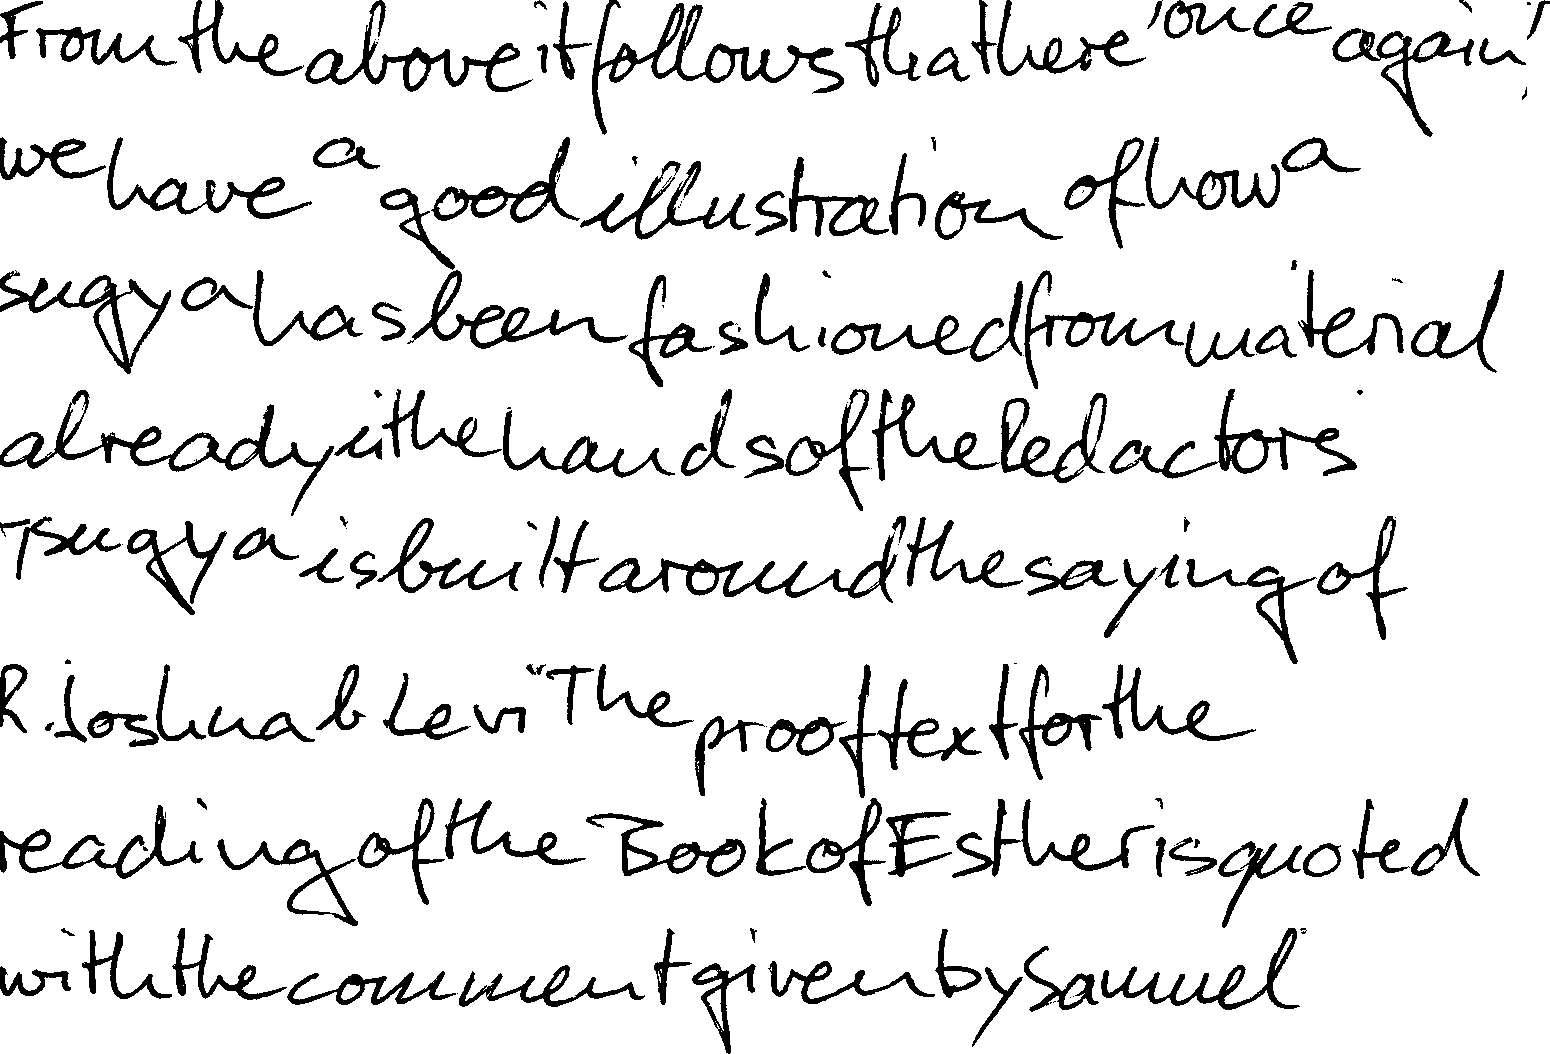 From the above it follows that there 'once again',
we have a good illustration of how a
sugya has been fashioned from material
already i the hands of the Redactors.
T sugya is built around the saying of
R. Joshua b Levi "The proof text for the
reading of the Book of Esther is quoted
with the comment given by Samuel